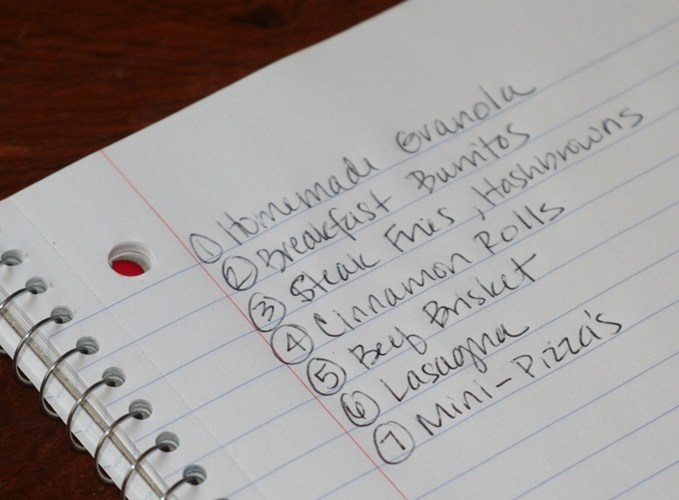 ① Homemade Granola
② Breakfast Burritos
③ Steak Fries, Hashbrowns
④ Cinnamon Rolls
⑤ Beef Brisket
⑥ Lasagna
⑦ Mini-Pizza's